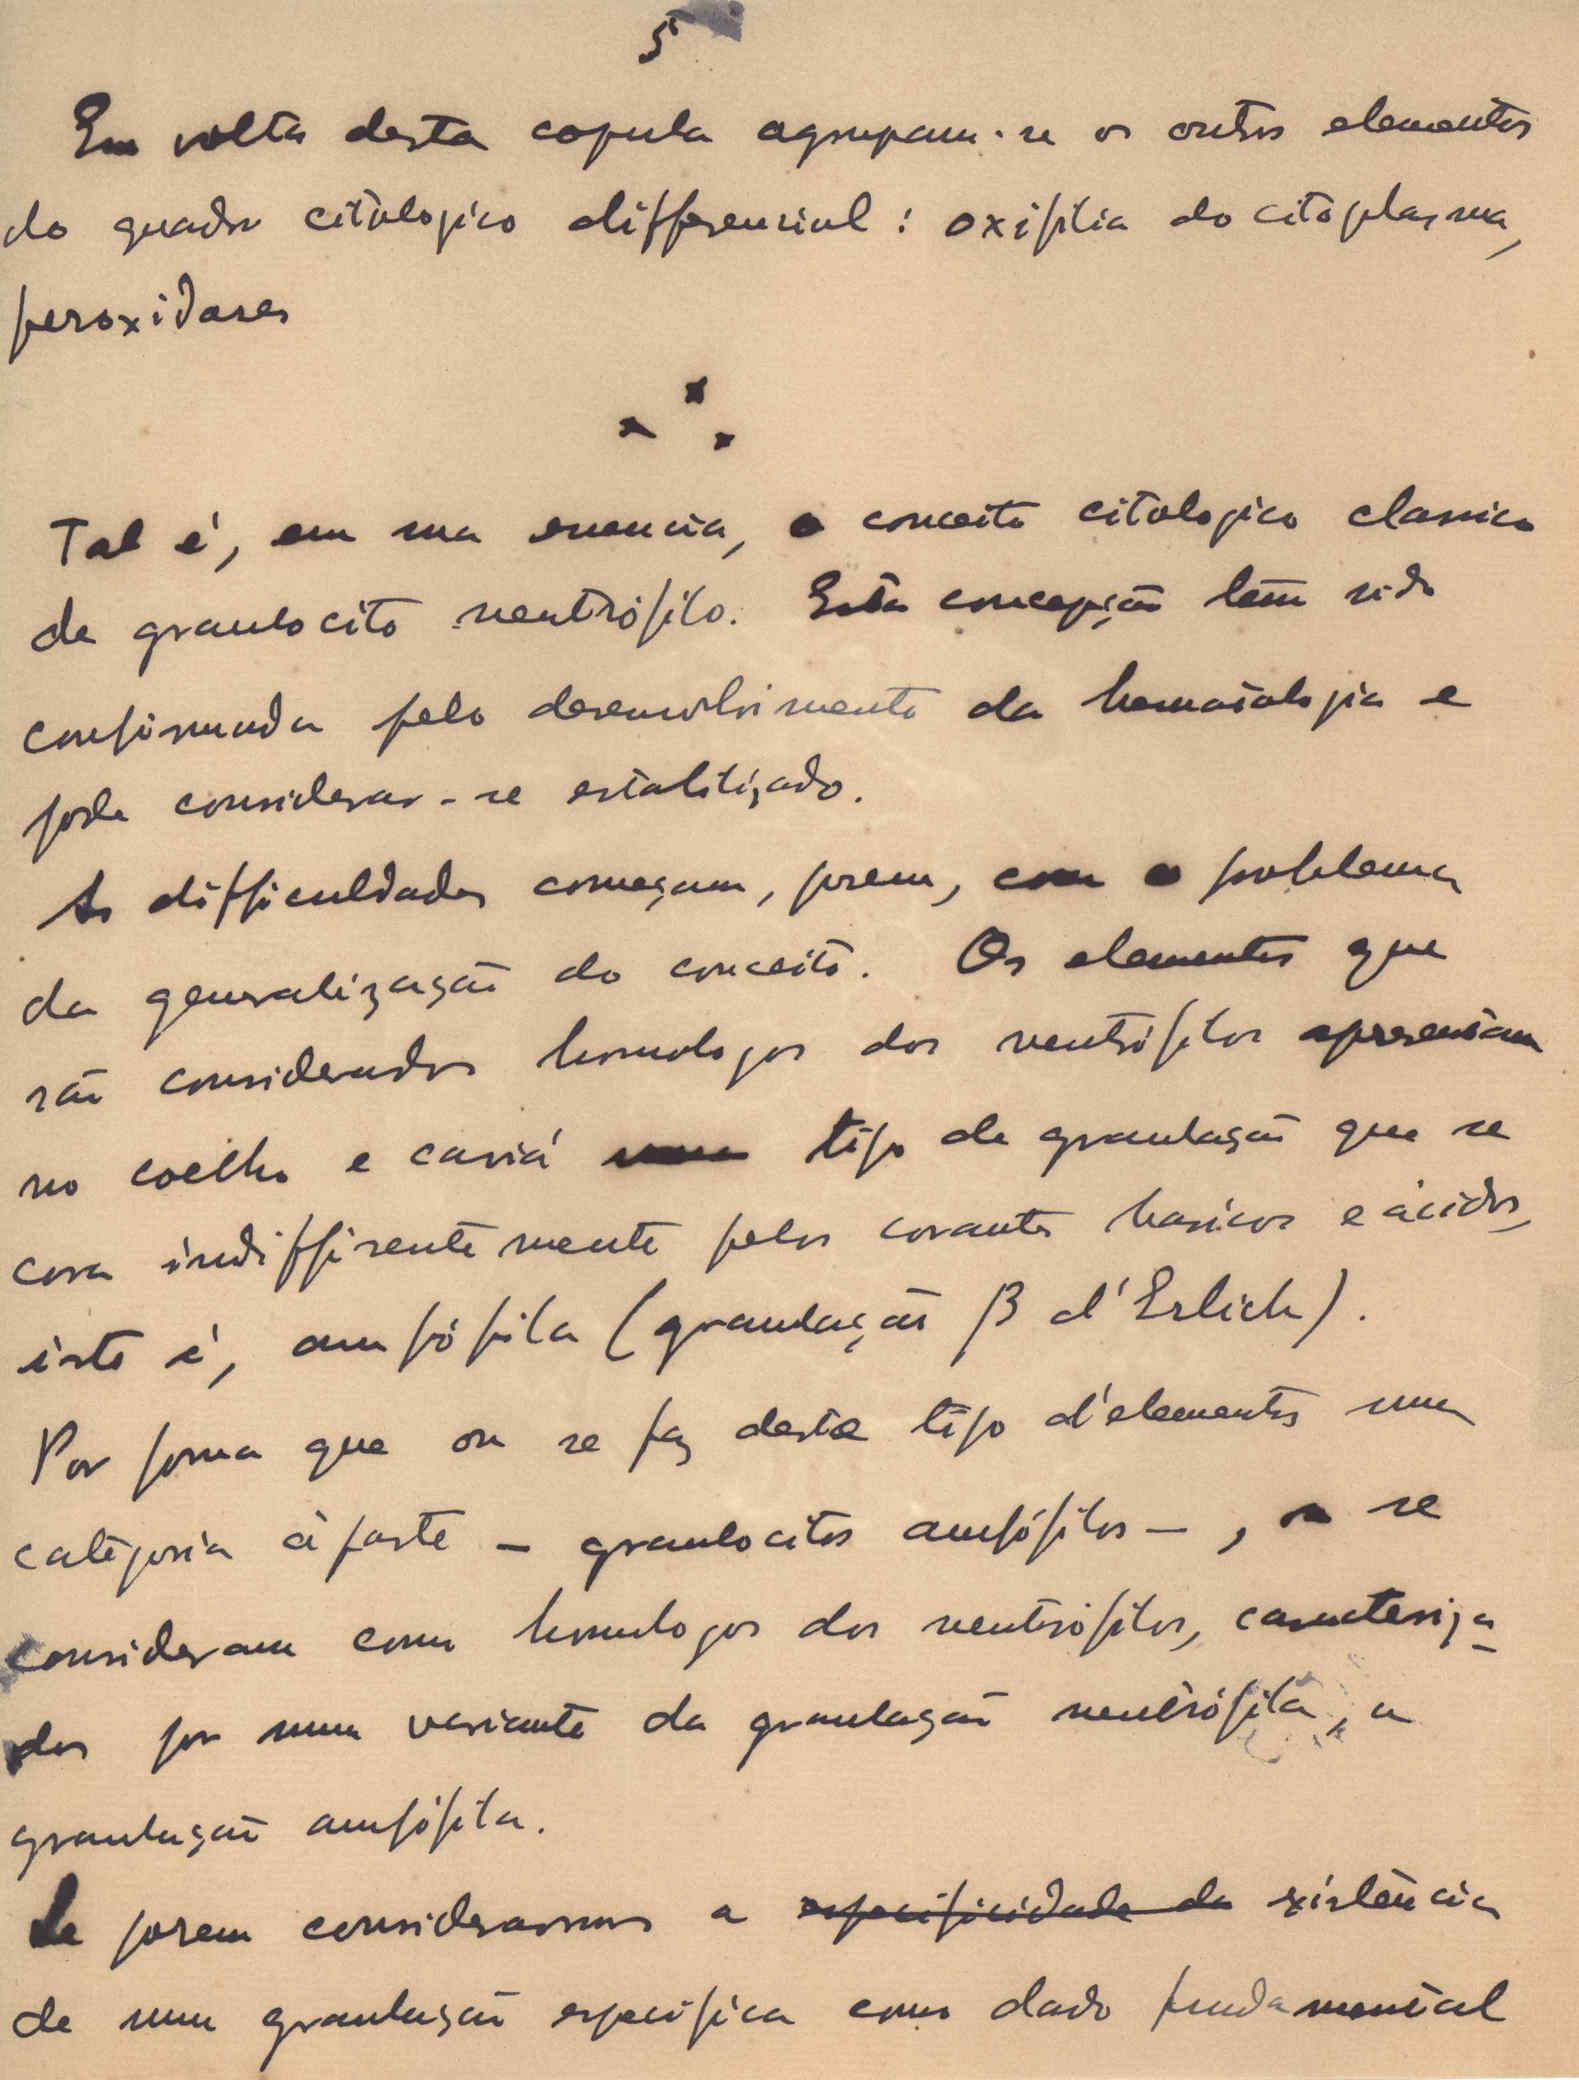 5
Em volta desta copula agrupam-se os outros elementos
do quadro citologico differencial: oxifilia do citoplasma,
peroxidases
Tal é, em sua essencia, o conceito citologico classico
de granulocito neutrófilo. Esta concepção tem sido
confirmada pelo desenvolvimento da hematologia e
pode considerar-se estabilizado.
As difficuldades começam, porem, com o problema
da generalização do conceito. Os elementos que
são considerados homologos dos neutrófilos apresentam
no coelho e caviá tipo de granulação que se
cora indifferentemente pelos corantes basicos e ácidos,
isto é, amfófila (granulação β d'Erlich).
Por forma que ou se faz deste tipo d'elementos uma
categoria àparte – granulocitos amfófilos –, ou se
consideram como homologos dos neutrófilos, caracteriza-
dos por uma variante da granulação neutrófila, a
granulação amfófila.
Se porem considerarmos a especificidade da existência
de uma granulação especifica como dado fundamental